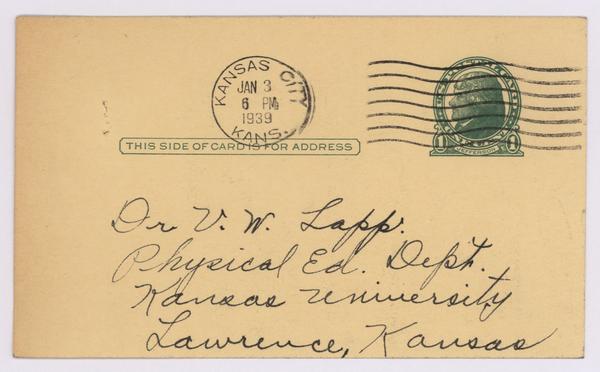 KANSAS CITY
JAN 3
6 PM
1939
KANS.
THIS SIDE OF CARD IS FOR ADDRESS
1 JEFFERSON 1
Dr V. W. Lapp.
Physical Ed. Dept.
Kansas University
Lawrence, Kansas